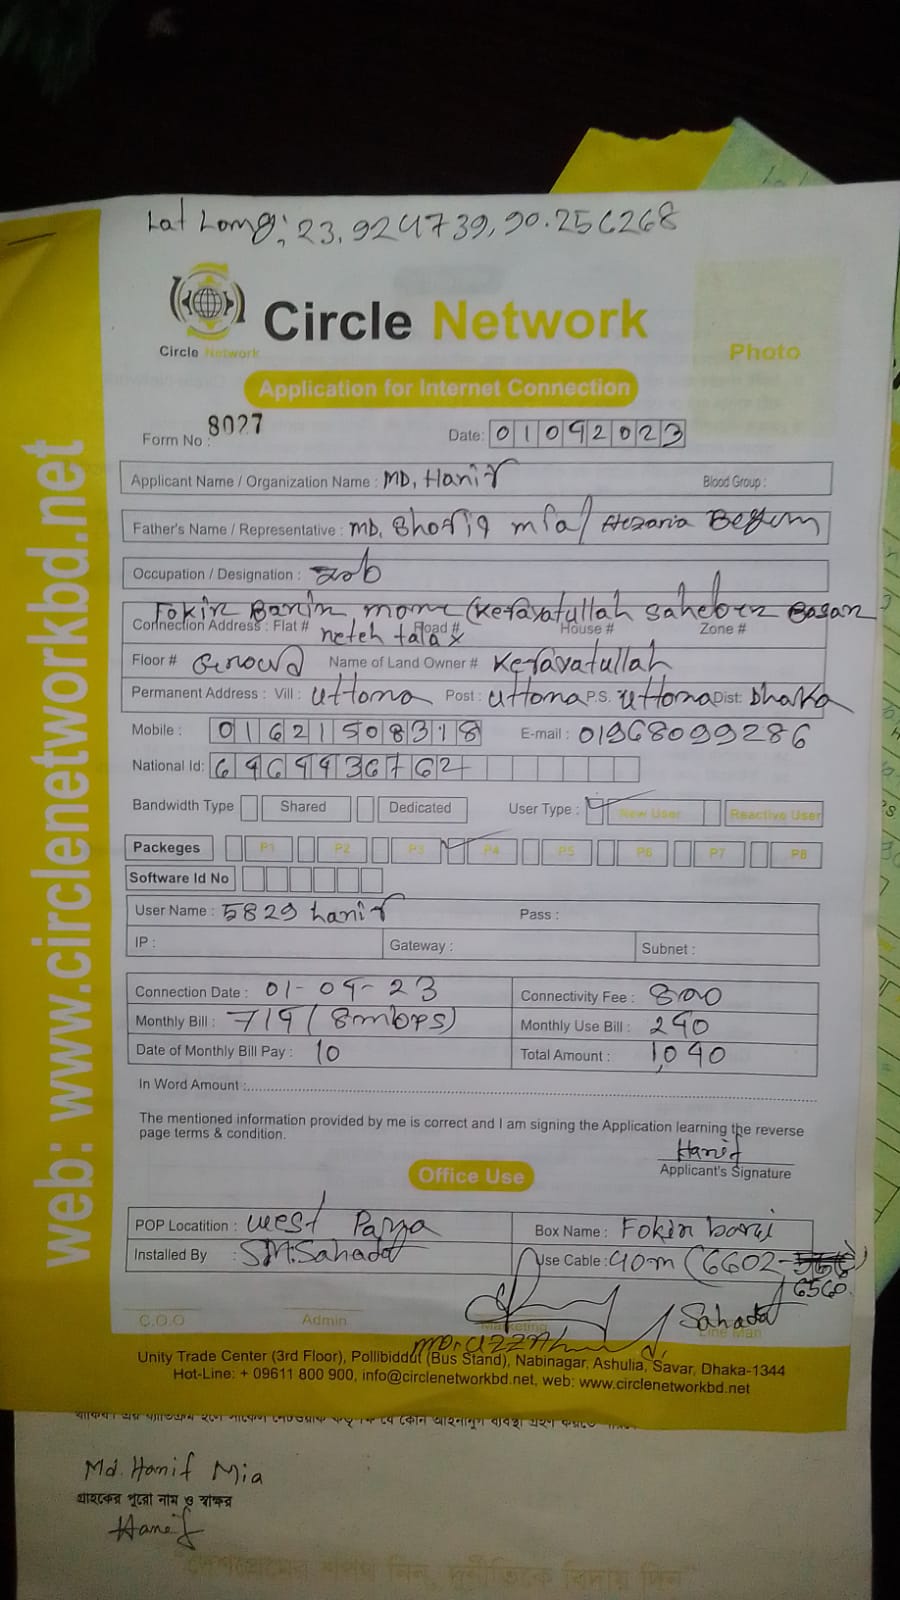 Lat Long: 23.924739, 90.256268
Circle Network
Circle Network
Photo
Application for Internet Connection
Form No : 8027 Date: 01092023
Applicant Name / Organization Name : MD. Hanif Blood Group :
Father's Name / Representative : MD. Shofiq mia / Hezaria Begum
Occupation / Designation : Job
Fokir Barir more (Kefayatullah saheber Basar
Connection Address : Flat # Road # House # Zone #
neteh tala x
Floor # Ground Name of Land Owner # Kefayatullah
Permanent Address : Vill : Uttoma Post : Uttoma P.S. Uttoma Dist: Dhaka
Mobile : 01621508318 E-mail : 01968099286
National Id: 6469936762
Bandwidth Type Shared Dedicated User Type : New User Reactive User
Packeges P1 P2 P3 P4 P5 P6 P7 P8
Software Id No
User Name : 5829 hanif Pass :
IP : Gateway : Subnet :
Connection Date : 01-09-23 Connectivity Fee : 800
Monthly Bill : 719 (8mbps) Monthly Use Bill : 240
Date of Monthly Bill Pay : 10 Total Amount : 1,040
In Word Amount :
The mentioned information provided by me is correct and I am signing the Application learning the reverse
page terms & condition.
Hanif
Applicant's Signature
Office Use
POP Locatition : West Para Box Name : Fokir bari
Installed By : SM.Sahadat Use Cable : 40m (6602-
6560
Sahadat
C.O.O Admin Marketing Line Man
Unity Trade Center (3rd Floor), Pollibiddut (Bus Stand), Nabinagar, Ashulia, Savar, Dhaka-1344
Hot-Line: + 09611 800 900, info@circlenetworkbd.net, web: www.circlenetworkbd.net
web: www.circlenetworkbd.net
Md. Hanif Mia
গ্রাহকের পুরো নাম ও স্বাক্ষর
Hanif
"দেশপ্রেমের শপথ নিন, দুর্নীতিকে বিদায় দিন"